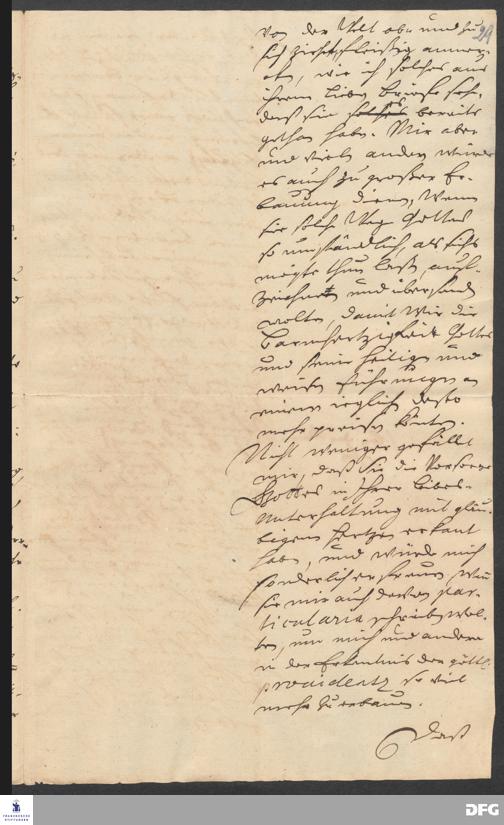 von der Welt ab- und zu
sich ziehet, fleißig anmer-
cken, wie ich solches aus
ihrem lieben briefe sehe,
daß sie solches bereits
gethan habe. Mir aber
und vielen andern würde
es auch zu großer Er-
bauung dienen, wenn
sie solche Wege Gottes
so umständlich, als sichs
mögte thun laßen, auf-
zeichnen und übersenden
wolten, damit wir die
Barmhertzigkeit Gottes
und seine heilige und
weise führungen
eines ieglichen desto
mehr preisen könten.
Nicht weniger gefällt
mir, daß Sie die Vorsorge
Gottes in Ihrer Leibes-
Unterhaltung mit gläu-
bigem Hertzen erkant
haben, und würde mich
sonderlich erfreuen, wenn
sie mir auch davon par-
ticularia schreiben wol-
ten, um mich und andere
in der Erkentnis der göttl.
providentz so viel
mehr zu erbauen.
Daß
29
FRANCKESCHE
STIFTUNGEN
DFG